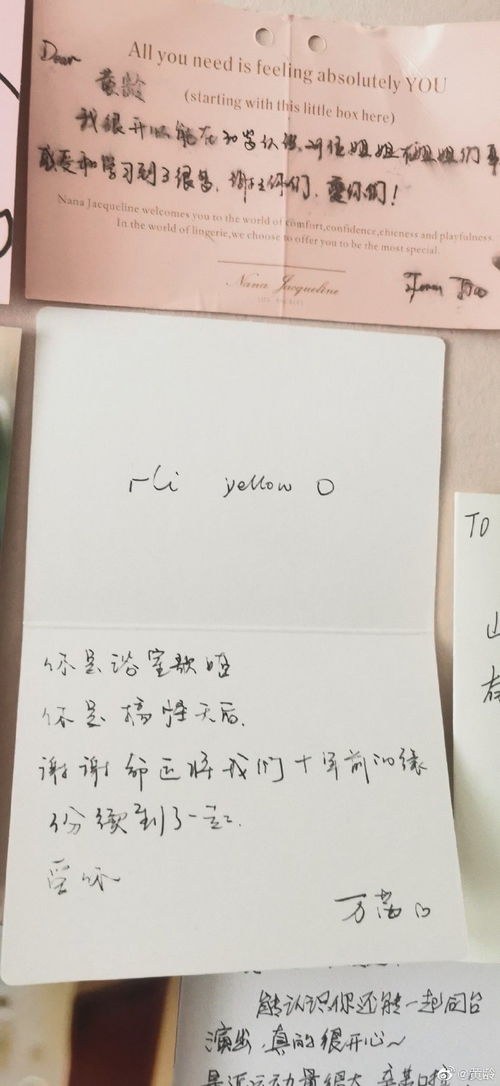 Dear
黄龄
All you need is feeling absolutely YOU
(starting with this little box here)
我很开心能在和学认识,对住姐姐 在姐姐们身
感受和学习到了很多,谢谢你们,爱你们!
Nana Jacqueline welcomes you to the world of comfort,confidence,chicness and playfulness.
In the world of lingerie,we choose to offer you to be the most special.
Nana Jacqueline
LOS ANGELES
Hi yellow 0
你是浴室歌姬
你是搞怪天后.
谢谢命运将我们十年前的缘
份续到了一起.
爱你
万茜
TO
能认识你还能一起同台
演出,真的很开心~
@黄龄